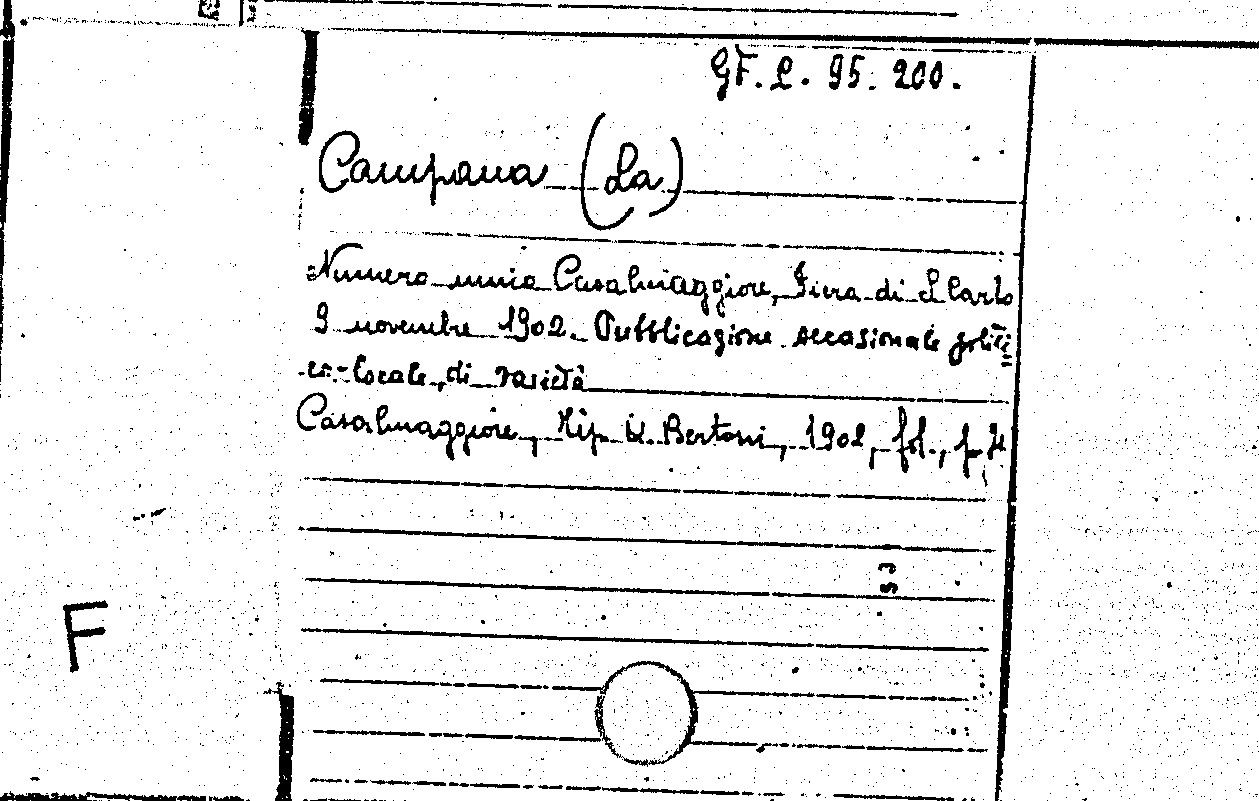 GF. L. 95. 200.
Campana (La)
Numero unico Casalmaggiore, Fiera di S. Carlo
9 novembre 1902. Pubblicazione occasionale politi=
co-locale, di varietà
Casalmaggiore, Tip. U. Bertoni, 1902, fol., p. 4
53
F